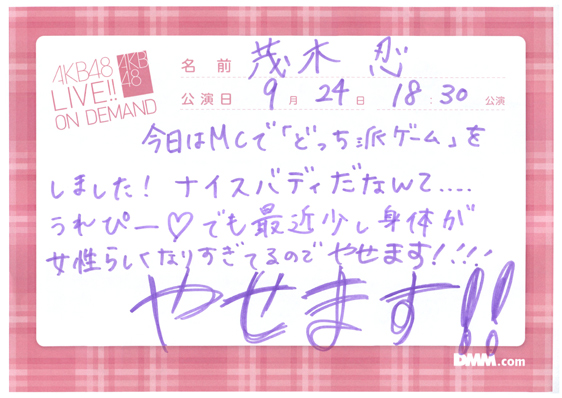 AKB48
LIVE!!
ON DEMAND
AKB
48
名前 茂木 忍
公演日 9月 24日 18:30 公演
今日はMCで「どっち派ゲーム」を
しました! ナイスバディだなんて....
うれぴー♡でも最近少し身体が
女性らしくなりすぎてるのでやせます!!!!
やせます!!
DMM.com